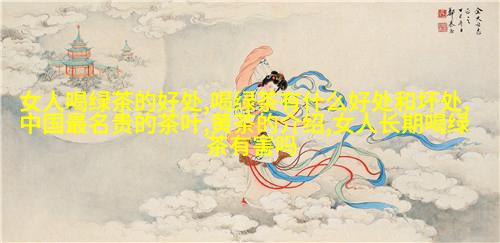 女人喝绿茶的好处,喝绿茶有什么好处和坏处,
中国最名贵的茶叶,黄茶的介绍,女人长期喝绿
茶有害吗